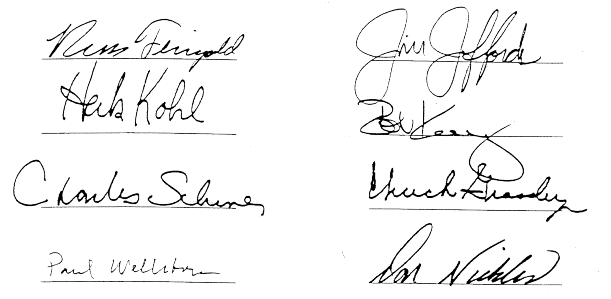 Russ Feingold
Herb Kohl
Charles Schumer
Paul Wellstone
Jim Jeffords
Bob Kerrey
Chuck Grassley
Don Nickles